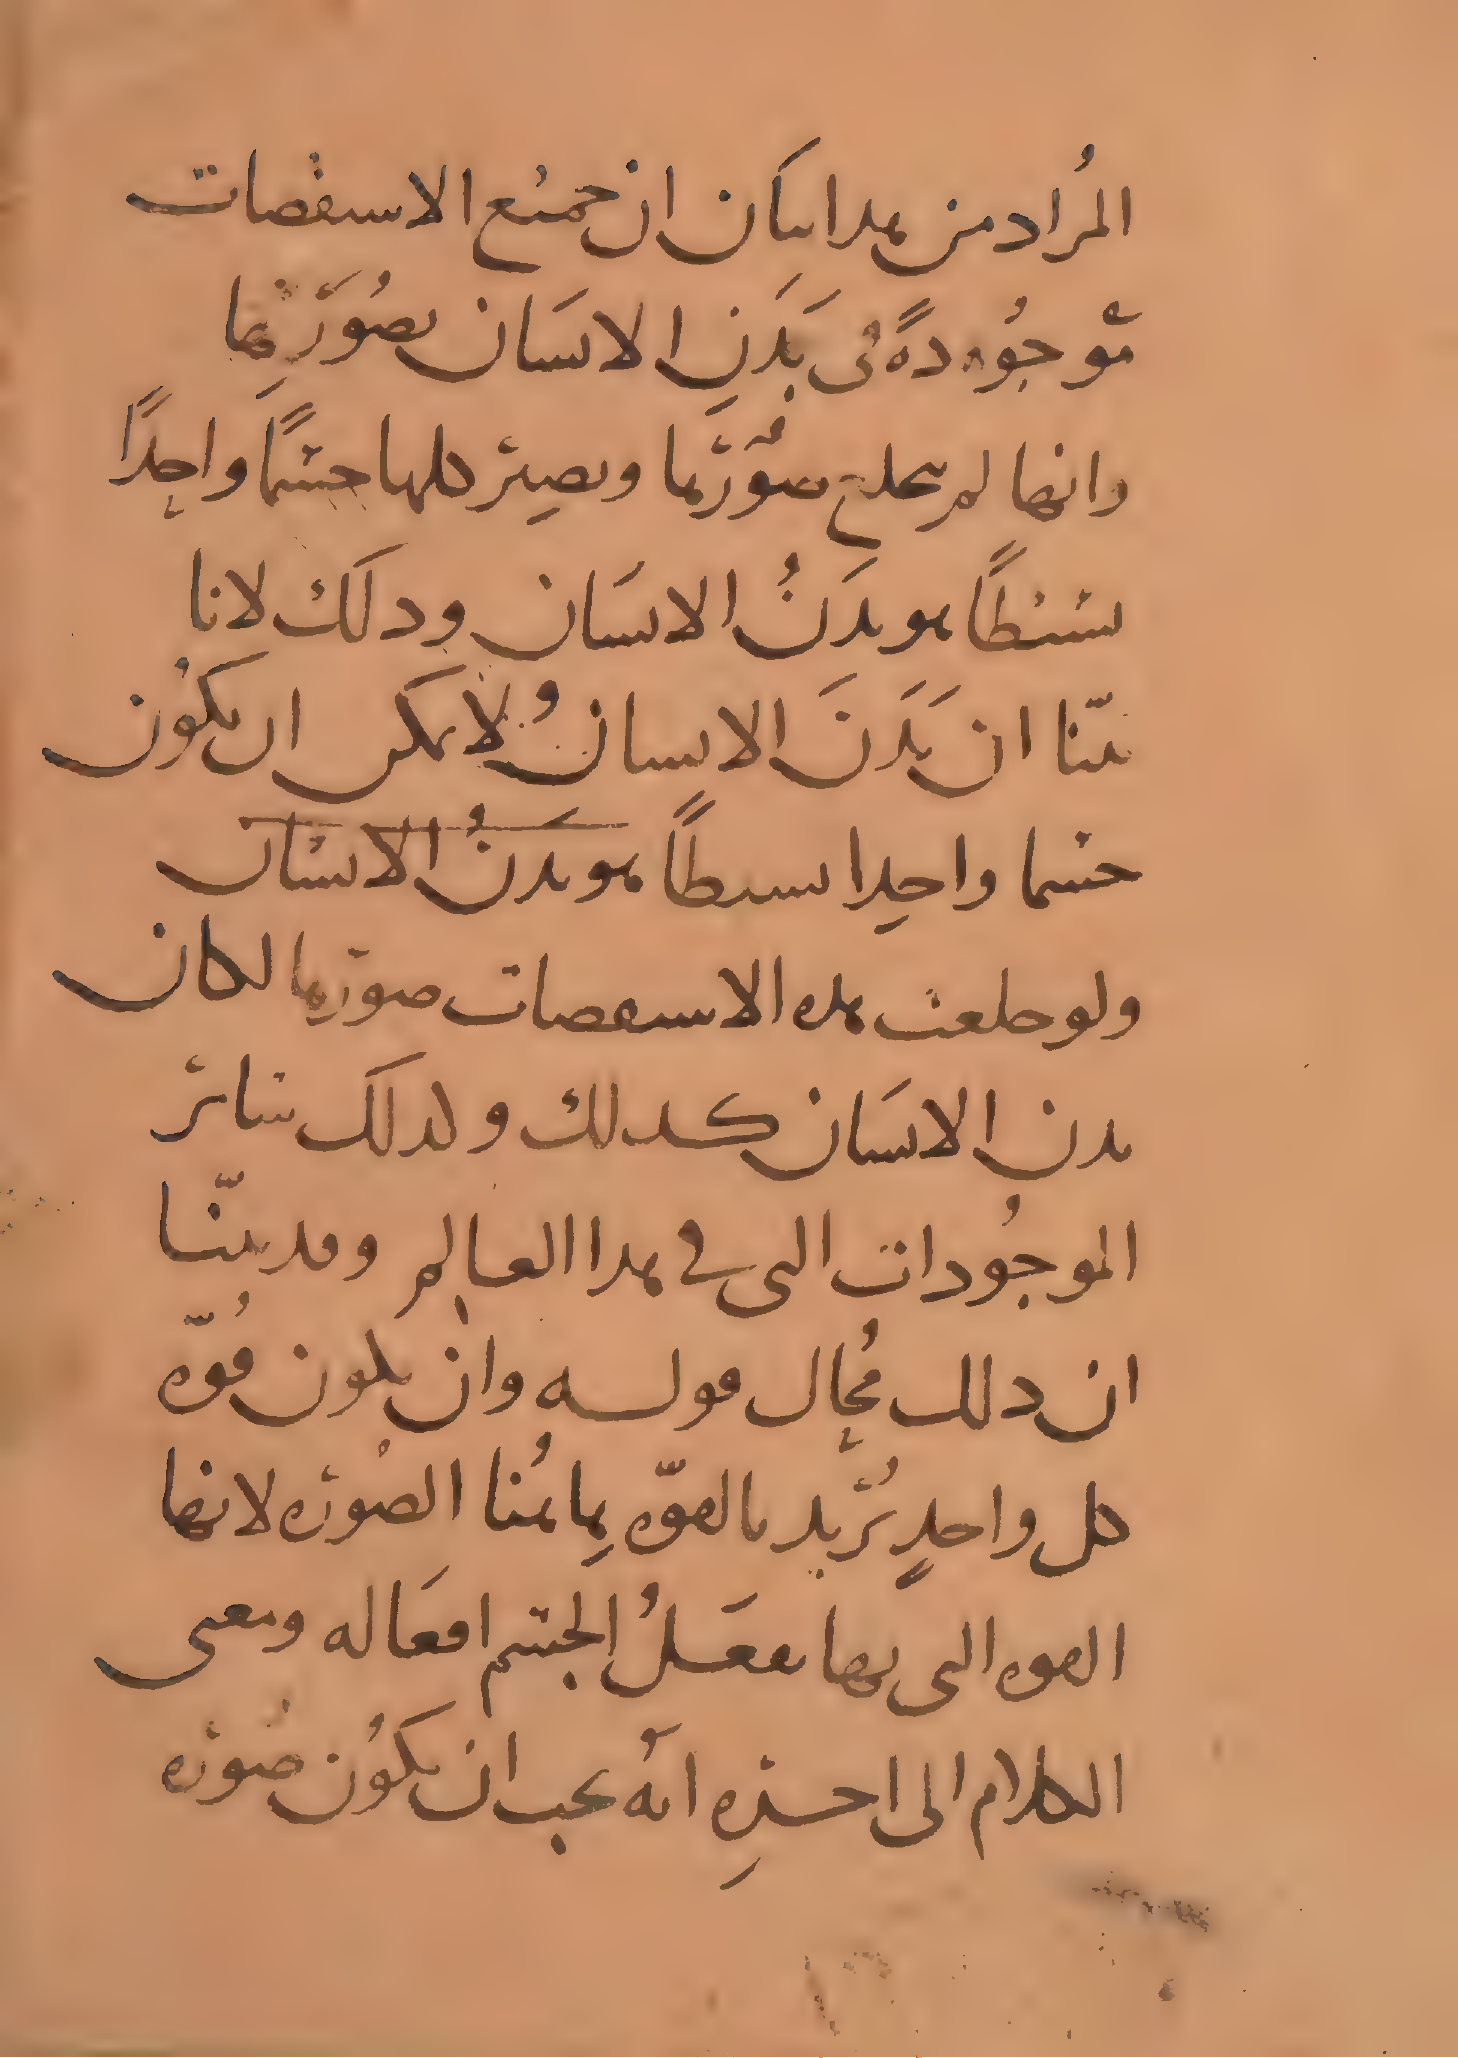 المُراد من هذا بيَان ان جميُع الاسقصات
موجُودةً في بَدَنِ الانسَان بصُوَرِها
وانها لم تخلع صُوَرَتها وتصير كلها جسمًا واحِدًا
بسيطًا هو بدَنُ الانسَان وذلَك لانا
بيّنا ان بَدَنَ الانسان ولا يمَكن ان يكوُن
جسما واحِدا بسيطًا هو بدَنُ الانسان
ولو خلعت هذه الاسقصات صورتها لكان
بدن الانسَان كذلك ولذلَك سائر
الموجُودات التي في هذا العالم وقد بيّنا
ان ذلك مُحال قولـه وان يكون قُوّة
كل واحدٍ يُريد بالقوّه هاهُنا الصُورَه لانها
القوه التي بها يفعَـلُ الجسم افعَاله ومعنى
الكلام الى اخـرِه انّه يجب ان يكوُن صُورَه